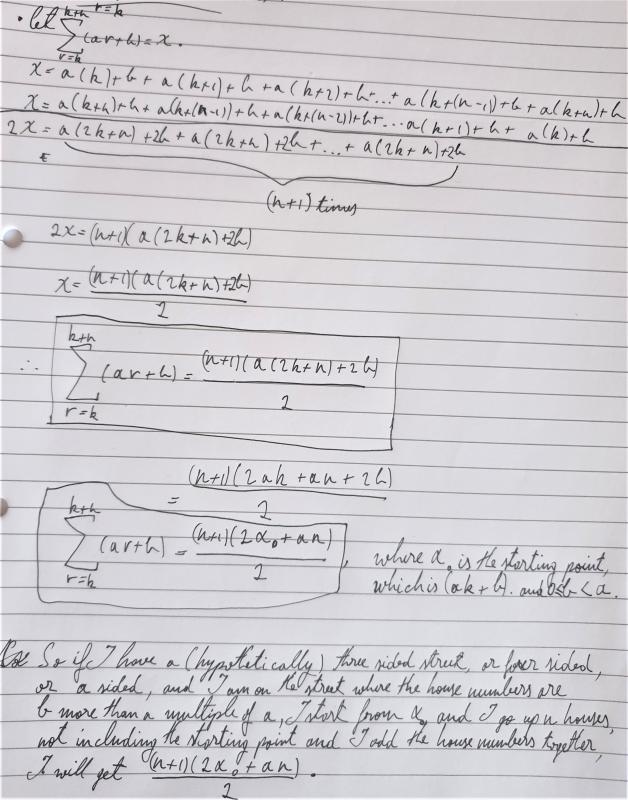 k+n r=k
• let ∑ (ar+b)=x.
r=k
x=a(k)+b+a(k+1)+b+a(k+2)+b+...+a(k+(n-1))+b+a(k+n)+b
x=a(k+n)+b+a(k+(n-1))+b+a(k+(n-2))+b+...a(k+1)+b+a(k)+b
2x=a(2k+n)+2b+a(2k+n)+2b+...+a(2k+n)+2b
(n+1) times
2x=(n+1)(a(2k+n)+2b)
x=(n+1)(a(2k+n)+2b)
2
k+n
∴ ∑ (ar+b)=(n+1)(a(2k+n)+2b)
r=k 2
=(n+1)(2ak+an+2b)
2
k+n
∑ (ar+b)=(n+1)(2x₀+an), where x₀ is the starting point,
r=k 2 which is (ak+b). and 0≤b<a.
So if I have a (hypothetically) three sided street, or four sided,
or a sided, and I am on the street where the house numbers are
b more than a multiple of a, I start from x₀ and I go up n houses,
not including the starting point and I add the house numbers together,
I will get (n+1)(2x₀+an).
2